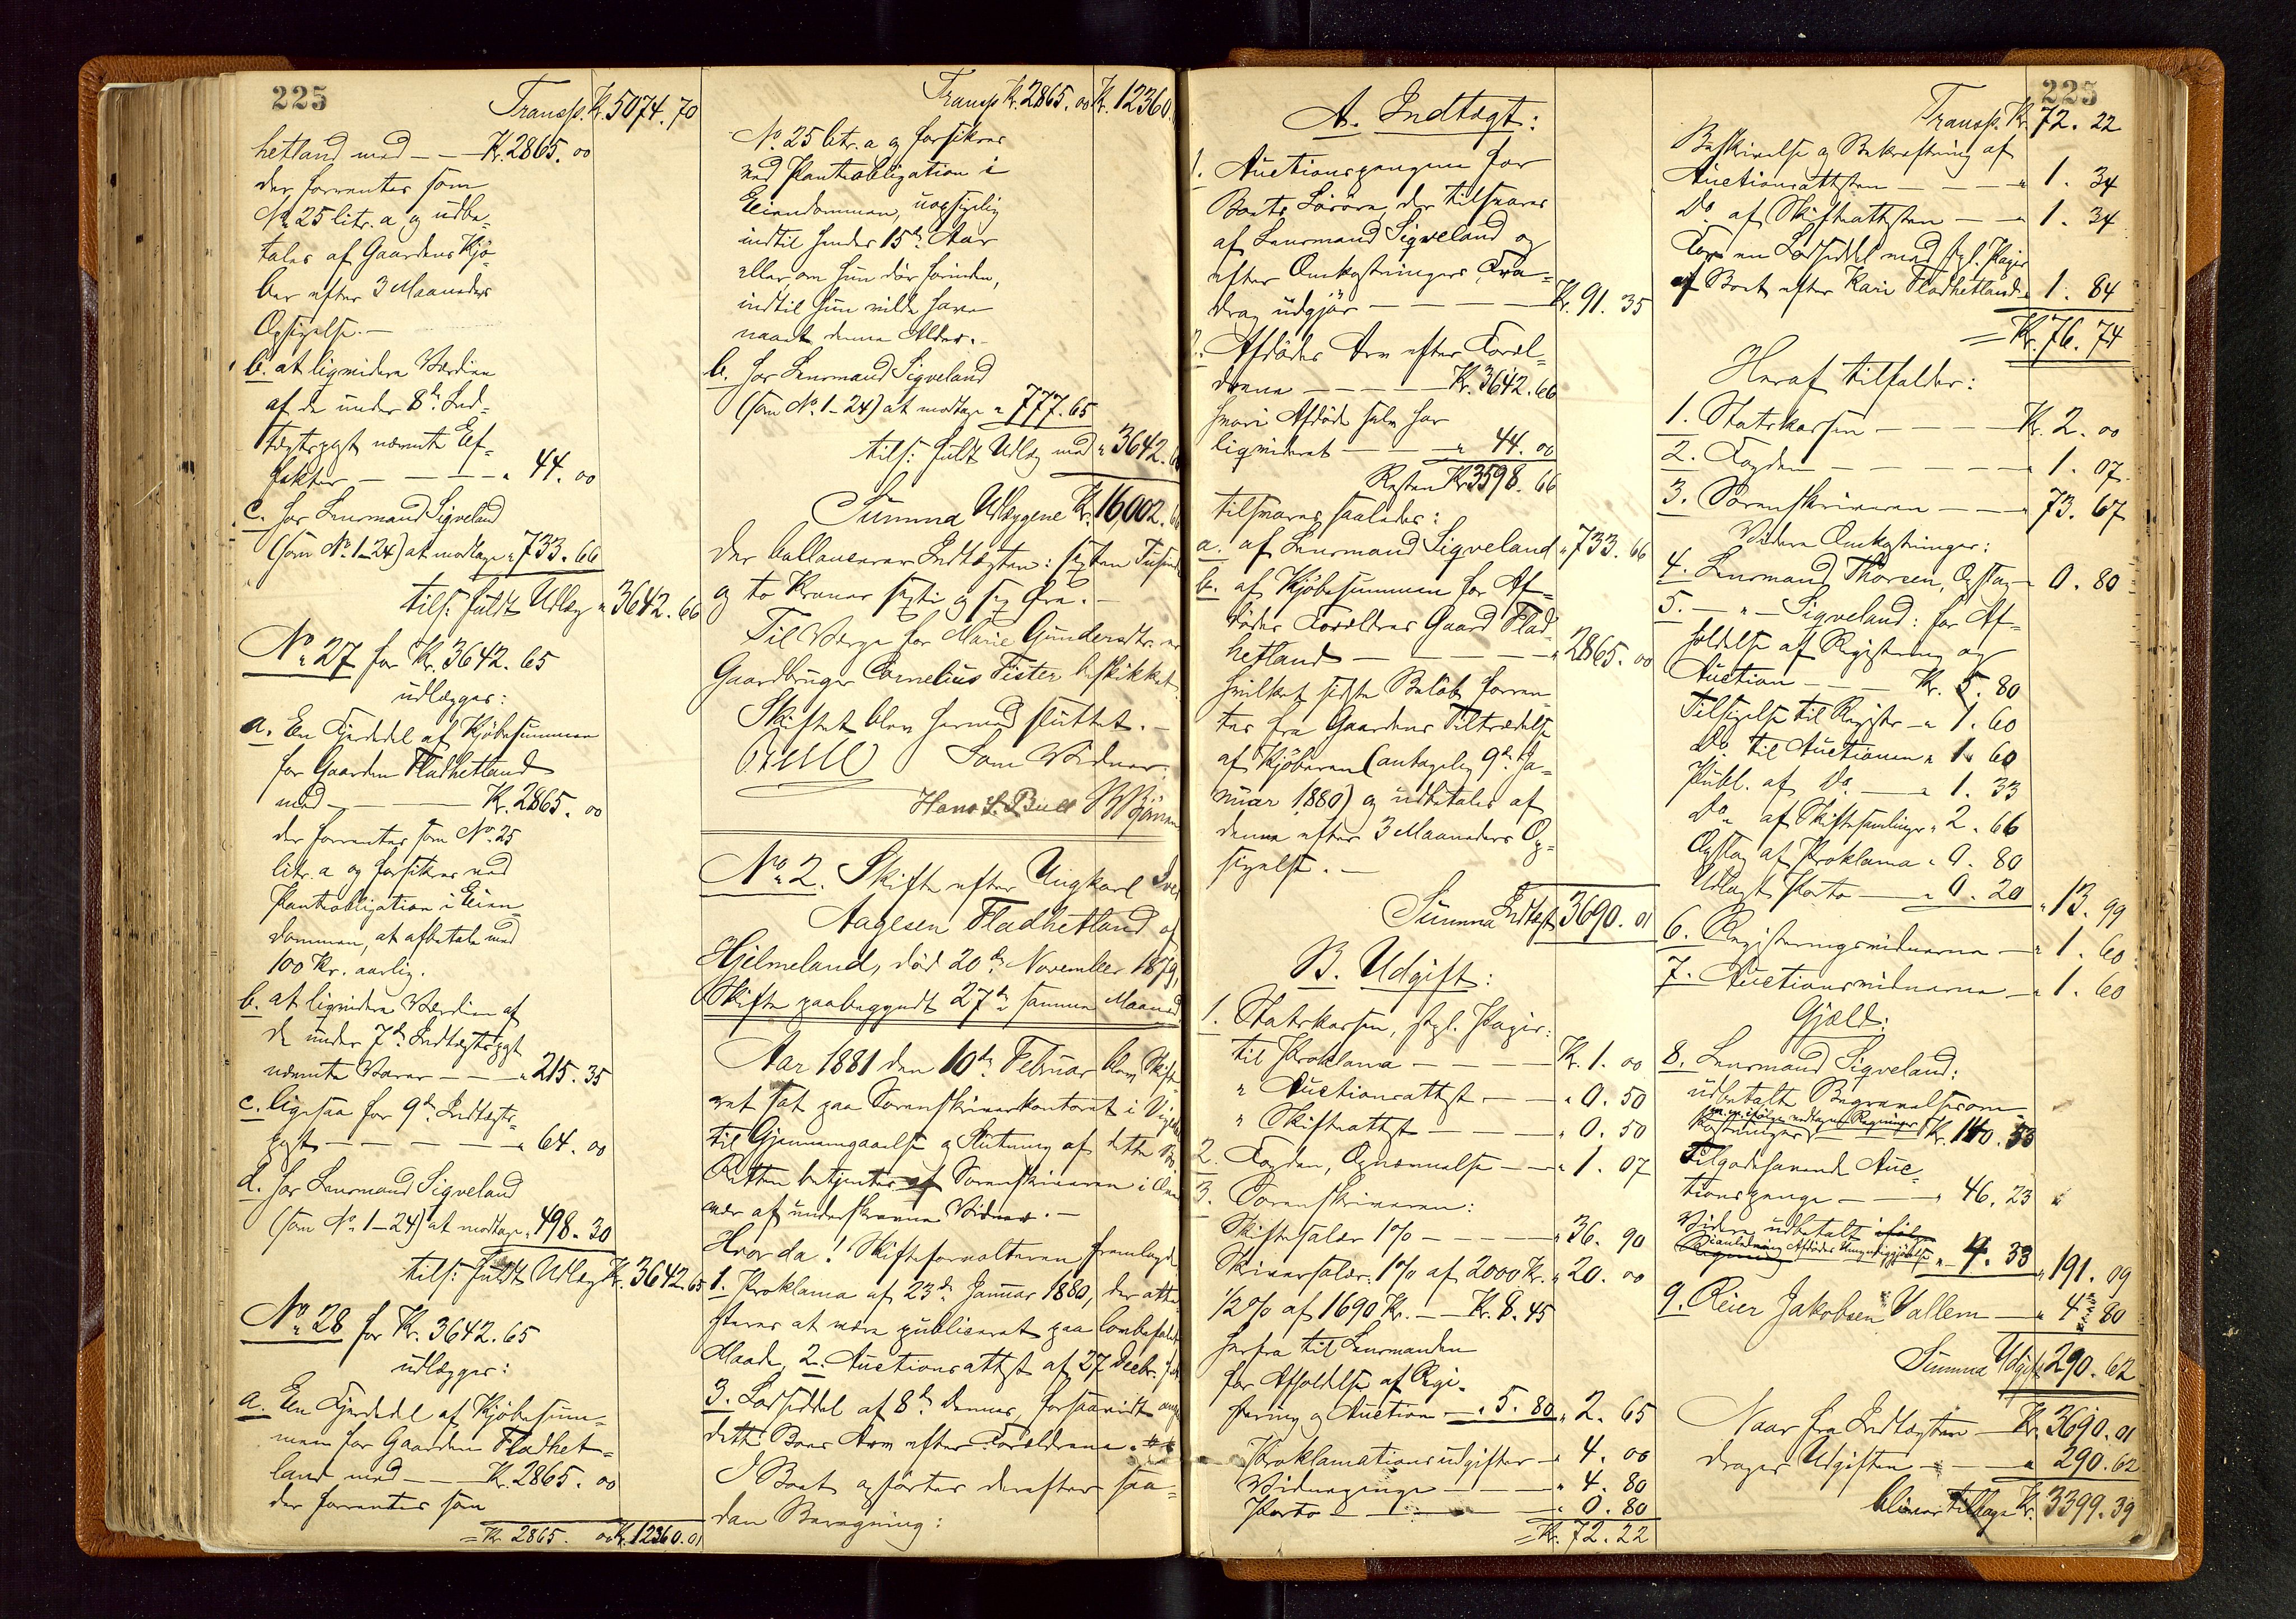 225
Transp. Kr. 5074. 70
hetland med — — Kr. 2865. 00
der forrentes som
No 25 litr. a og udbe-
tales af Gaardens Kjø-
ber efter 3 Maaneders
Opsigelse. —
b. at liqvidere Værdien
af de under 8de Ind-
tægtspost nævnte Ef-
fekter — — — — " 44. 00
c. hos Lensmand Sigveland
(som No 1-24) at modtage " 733. 66
tils: fuldt Udlæg " 3642. 66
No 27 for Kr. 3642. 65
udlægges:
a. En Fjerdedel af Kjøbesummen
for Gaarden Fladhetland
med — — — Kr. 2865. 00
der forrentes som No 25
litr. a og forsikres ved
Panteobligation i Eien-
dommen, at afbetale med
100 Kr. aarlig.
b. at liqvidere Værdien af
de under 7de Indtægtspost
nævnte Varer — — — " 215. 35
c. ligesaa for 9de Indtægts-
post — — — — — " 64. 00
d. hos Lensmand Sigveland
(som No 1-24) at modtage " 498. 30
tils: fuldt Udlæg Kr. 3642. 65
No 28 for Kr. 3642. 65
udlægges:
a. En Fjerdedel af Kjøbesum-
men for Gaarden Fladhet-
land med — — Kr. 2865. 00
der forrentes som
= Kr. 2865. 00 Kr. 12360. 01
Transp. Kr. 2865. 00 Kr. 12360.
No 25 litr. a og forsikres
ved Panteobligation i
Eiendommen, uopsigelig
indtil hendes 15de Aar
eller om hun dør forinden,
indtil hun vilde have
naaet denne Alder. —
b. hos Lensmand Sigveland
(som No 1-24) at modtage " 777. 65
tils: fuldt Udlæg med " 3642.
Summa Udlæggene Kr. 16,002.
der ballancerer Indtægten: sexten Tusind
og to Kroner sexti og sex Øre. —
Til Værge for Marie Gundersdtr. er
Gaardbruger Cornelius Fister beskikket.
Skiftet blev hermed sluttet. —
Som Vidner:
Hans S. Bull
No 2. Skifte efter Ungkarl Iver
Aagesen Fladhetland af
Hjelmeland, død 20de November 1879,
Skifte paabegyndt 27de samme Maaned.
Aar 1881 den 10de Februar blev Skifte-
ret sat paa Sorenskriverkontoret i
til Gjennemgaaelse og Slutning af dette Bo
Retten betjentes af Sorenskriveren i Over-
vær af underskrevne Vidner. —
Hvorda! Skifteforvalteren fremlagde
1. Proklama af 23de Januar 1880, der atte-
steres at være publiceret paa lovbefalet
Maade, 2. Auctionsattest af 27 Decbr.
3. Lodseddel af 8de Dennes, forsaavidt ang.
dette Boes Arv efter Forældrene.
I Boet opførtes derefter saa-
dan Beregning:
A. Indtægt:
1. Auctionspengene for
Boets Løsøre, der tilsvares
af Lensmand Sigveland og
efter Omkostningers Fra-
drag udgjør — — — Kr. 91. 35
2. Afdødes Arv efter Foræl-
drene — — — — Kr. 3642. 66
hvori Afdøde selv har
liqvideret — — — " 44. 00
Resten Kr. 3598. 66
tilsvares saaledes:
a. af Lensmand Sigveland " 733. 66
b. af Kjøbesummen for Af-
dødes Forældres Gaard Flad-
hetland — — — — " 2865. 00
hvilket sidste Beløb forren-
tes fra Gaardens Tiltrædelse
af Kjøberen (antagelig 9de Ja-
nuar 1880) og udbetales af
denne efter 3 Maaneders Op-
sigelse. —
Summa Indtægt 3690. 01
B. Udgift:
1. Statskassen, stpl. Papir:
til Proklama — — — — Kr. 1. 00
" Auctionsattest — — " 0. 50
" Skifteattest — — — " 0. 50
2. Fogden, Opnævnelse — — " 1. 07
3. Sorenskriveren:
Skiftesalær 1% — — — " 36. 90
Skriversalær: 1% af 2000 Kr. " 20. 00
1/2% af 1690 Kr. — Kr. 8. 45
herfra til Lensmanden
for Afholdelse af Regi-
strering og Auction — " 5. 80 " 2. 65
Proklamationsudgifter — " 4. 00
Vidnepenge — — — " 4. 80
Porto — — — " 0. 80
= Kr. 72. 22
225
Transp. Kr. 72. 22
Beskrivelse og Bekræftning af
Auctionsattesten — — — " 1. 34
Do. af Skifteattesten — — " 1. 34
For en Lodseddel med stpl. Papir
af Boet efter Kari Fladhetland " 1. 84
= Kr. 76. 74
Heraf tilfalder:
1. Statskassen — — — Kr. 2. 00
2. Fogden — — — — — " 1. 07
3. Sorenskriveren — — " 73. 67
Videre Omkostninger:
4. Lensmand Thorsen, Opslag " 0. 80
5. — " — Sigveland: for Af-
holdelse af Registrering og
Auction — — — Kr. 5. 80
Tilsigelse til Registr. — " 1. 60
Do. til Auctionen " 1. 60
Publ. af Do. — — " 1. 33
Do. af Skiftesamlinger " 2. 66
Opslag af Proklama " 0. 80
Udlagt Porto — — " 0. 20 " 13. 99
6. Registreringsvidnerne — " 1. 60
7. Auctionsvidnerne — " 1. 60
Gjæld:
8. Lensmand Sigveland:
udbetalt Begravelsesom-
m. m. ifølge modtagne Regninger
kostninger — Kr. 140. 53
Tilgodehavende Auc-
tionspenge — — — " 46. 23
Videre udbetalt ifølge
Regning
i anledning Afdødes Umyndiggjørelse — " 4. 33 " 191. 09
9. Reier Jakobsen Vallem — " 4. 80
Summa Udgift 290. 62
Naar fra Indtægten — Kr. 3690. 01
drages Udgiften — — — " 290. 62
bliver tilbage Kr. 3399. 39